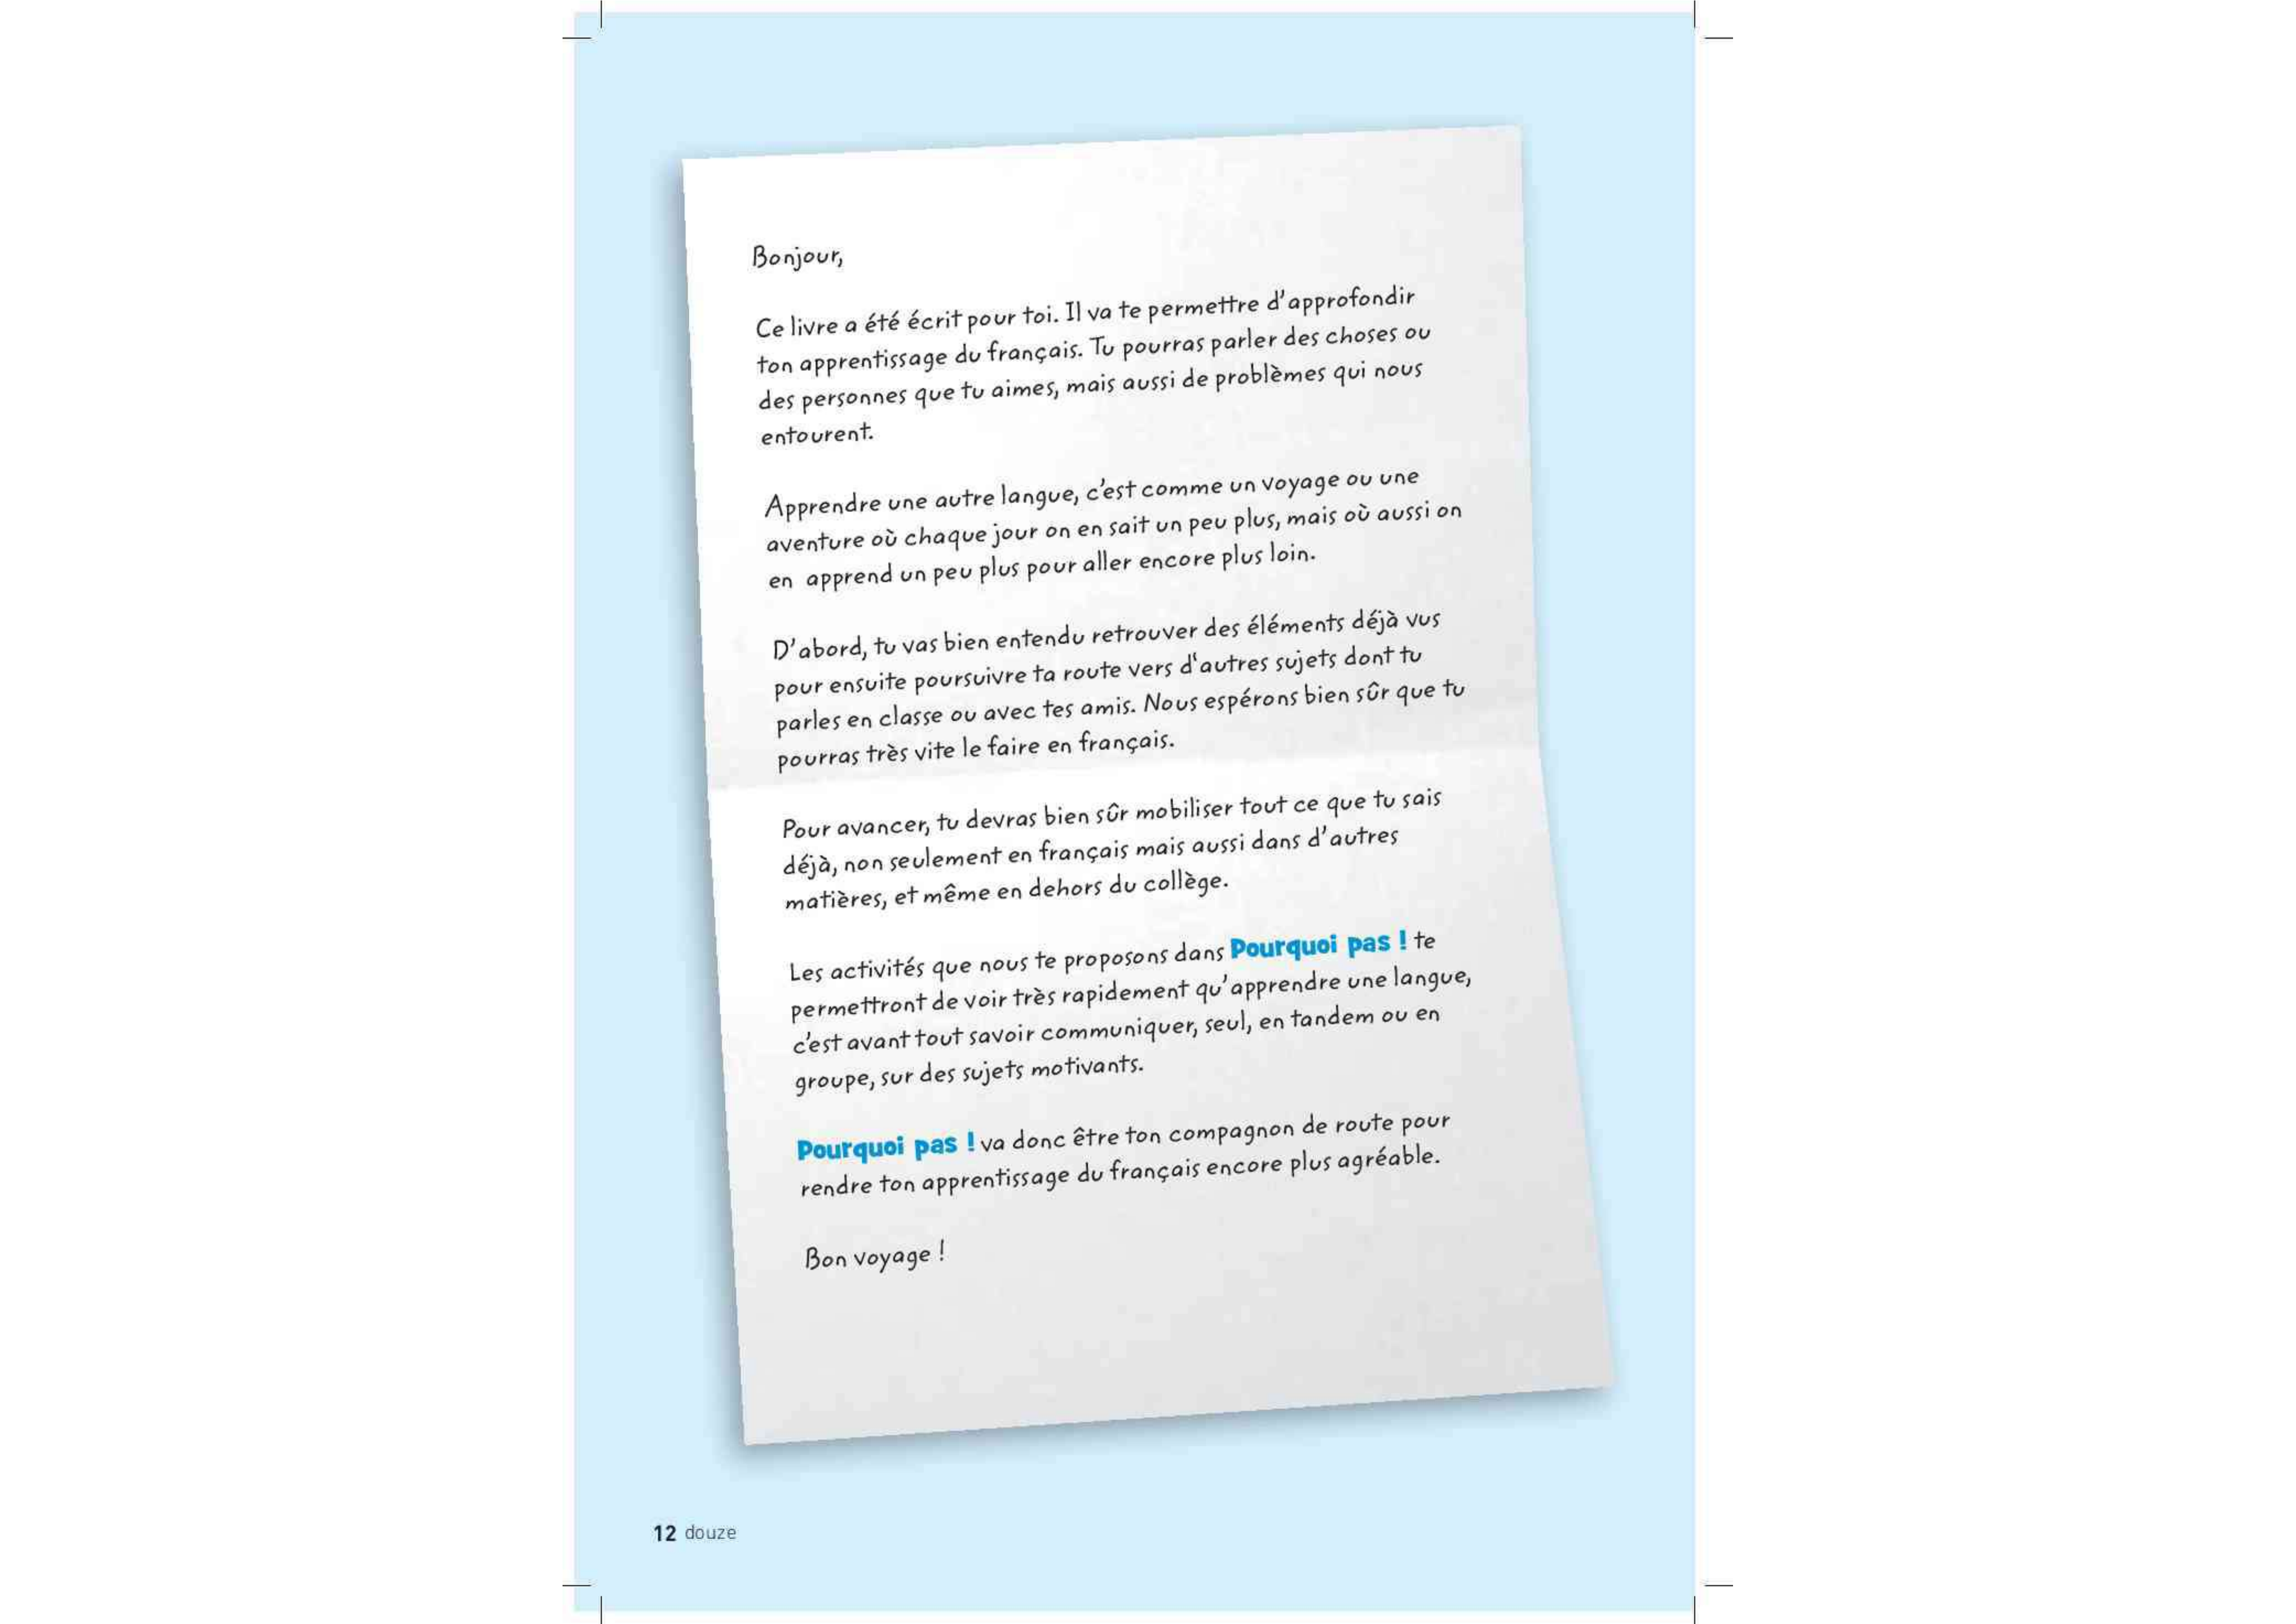 Bonjour,
Ce livre a été écrit pour toi. Il va te permettre d'approfondir
ton apprentissage du français. Tu pourras parler des choses ou
des personnes que tu aimes, mais aussi de problèmes qui nous
entourent.
Apprendre une autre langue, c'est comme un voyage ou une
aventure où chaque jour on en sait un peu plus, mais où aussi on
en apprend un peu plus pour aller encore plus loin.
D'abord, tu vas bien entendu retrouver des éléments déjà vus
pour ensuite poursuivre ta route vers d'autres sujets dont tu
parles en classe ou avec tes amis. Nous espérons bien sûr que tu
pourras très vite le faire en français.
Pour avancer, tu devras bien sûr mobiliser tout ce que tu sais
déjà, non seulement en français mais aussi dans d'autres
matières, et même en dehors du collège.
Les activités que nous te proposons dans Pourquoi pas ! te
permettront de voir très rapidement qu'apprendre une langue,
c'est avant tout savoir communiquer, seul, en tandem ou en
groupe, sur des sujets motivants.
Pourquoi pas ! va donc être ton compagnon de route pour
rendre ton apprentissage du français encore plus agréable.
Bon voyage !
12 douze